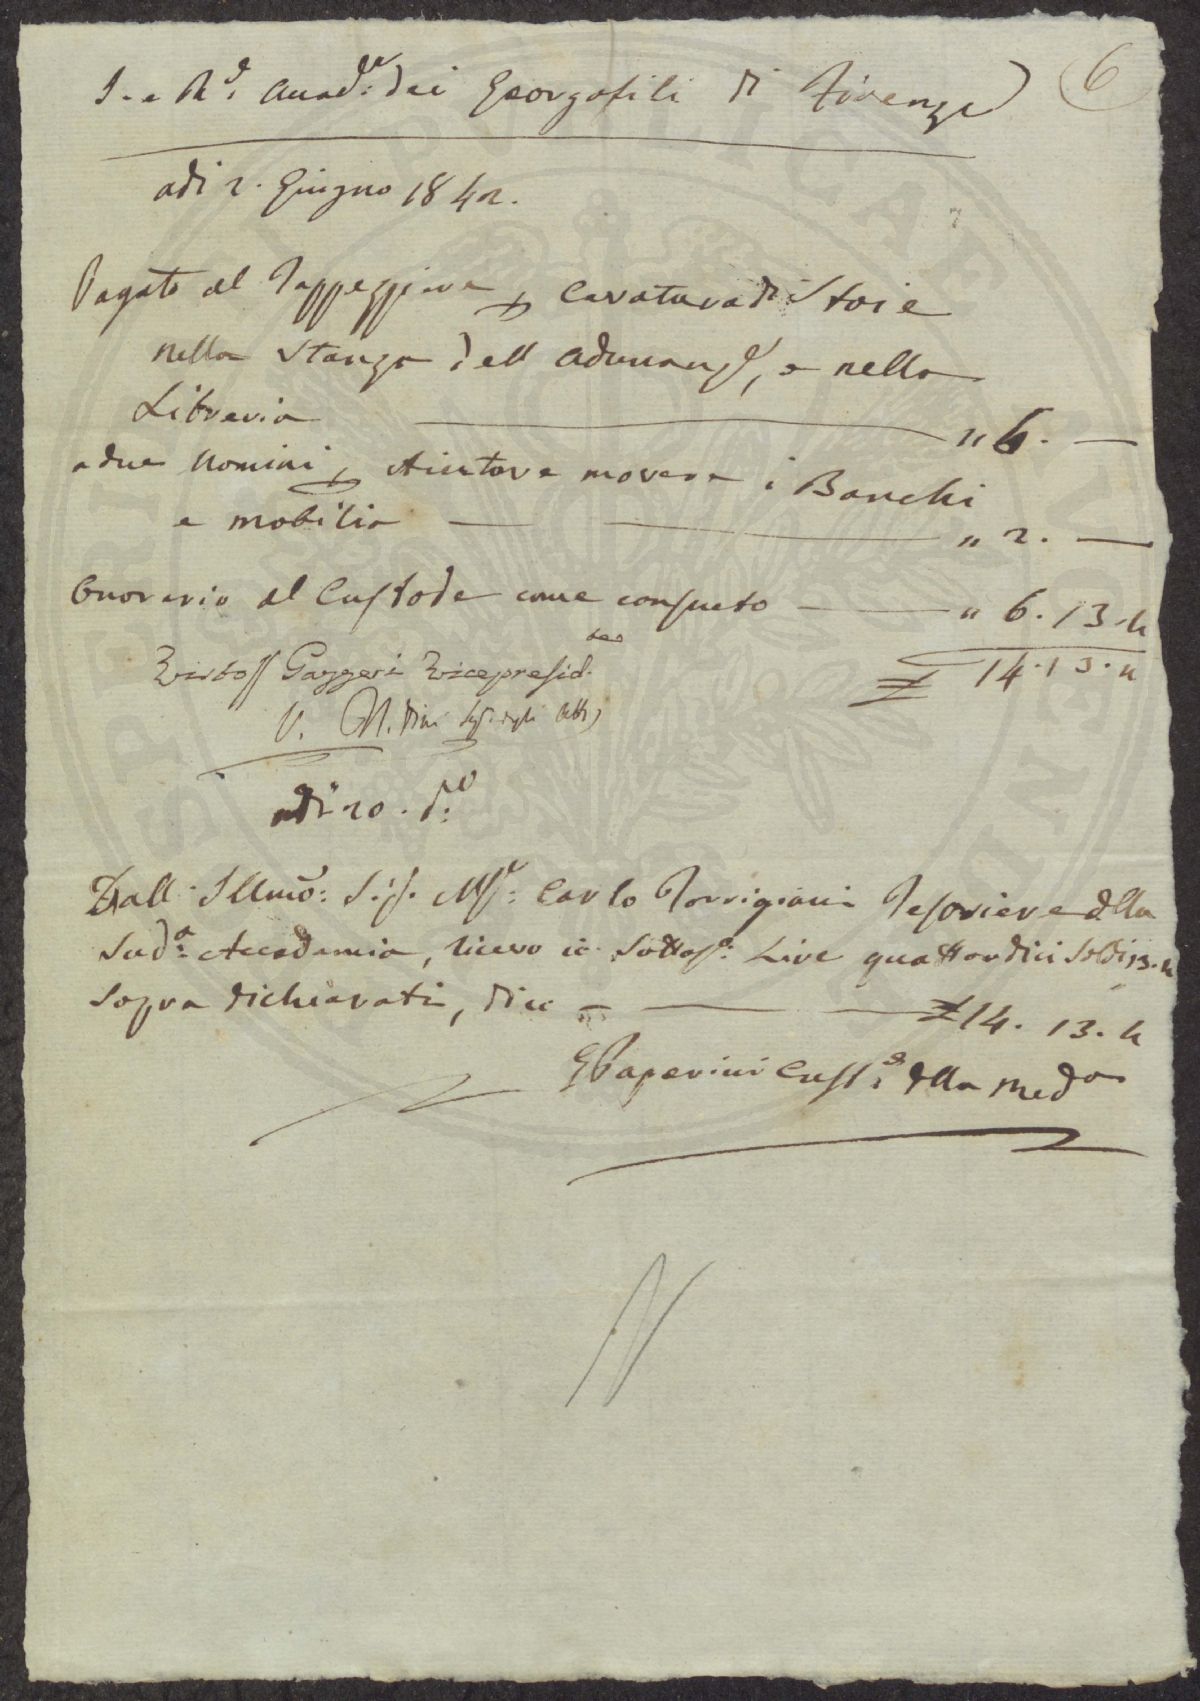 I. e R.e Accad.a dei Georgofili di Firenze
6
adi 2. Giugno 1842.
Pagato al Tappezziere p Cavatura di Stoie
nella Stanza dell Adunanze, e nella
Libreria " 6. —
a due Uomini p Aiutare movere i Banchi
e mobilia " 2. —
Onorario al Custode come consueto " 6. 13. 4
£ 14. 13. 4
Visto Gazzeri Vicepresid.te
V. Seg. degli Atti
adi 20. d.o
Dall Illmo: Sig. Mse: Carlo Torrigiani Tesoriere della
Sud.a Accademia, ricevo io Sottos.o: Lire quattordici Soldi 13. 4
sopra dichiarati, dico £ 14. 13. 4
G Paperini Cust.e della Med.a